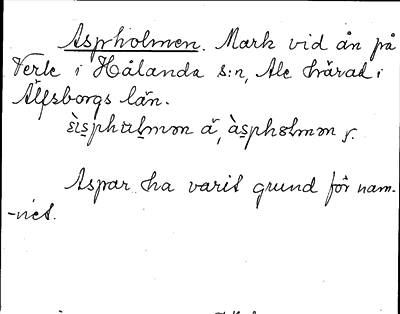 Aspholmen. Mark vid ån på
Verle i Hålanda s:n, Ale härad i
Älfsborgs län.
àspholmən ς.
Aspar ha varit grund för nam-
-net.